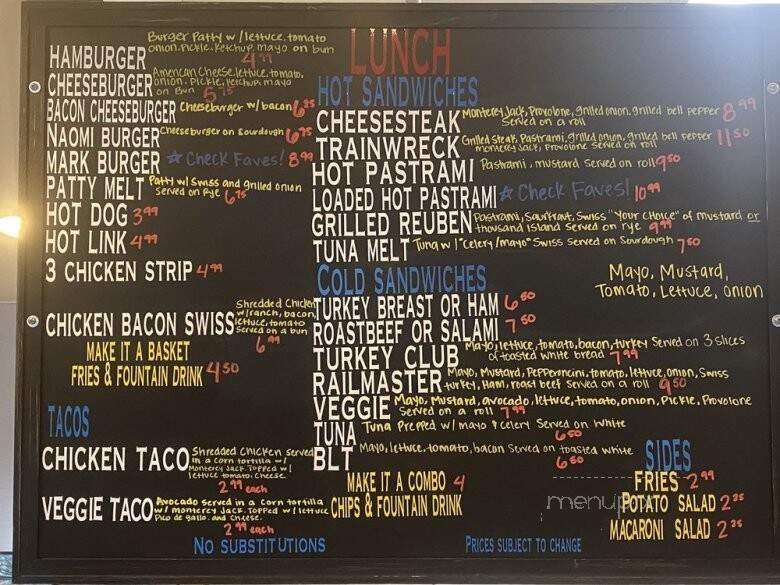 LUNCH
HAMBURGER Burger Patty w/ lettuce, tomato
onion, pickle, ketchup, mayo on bun
4.99
CHEESEBURGER American Cheese, lettuce, tomato,
onion, pickle, ketchup, mayo
on Bun 5.75
BACON CHEESEBURGER Cheeseburger w/ bacon 6.25
NAOMI BURGER Cheeseburger on Sourdough 6.75
MARK BURGER ☆ Check Faves! 8.99
PATTY MELT Patty w/ Swiss and grilled onion
Served on rye 6.75
HOT DOG 3.99
HOT LINK 4.99
3 CHICKEN STRIP 4.99
CHICKEN BACON SWISS Shredded Chicken
w/ranch, bacon,
lettuce, tomato
Served on a bun
6.99
MAKE IT A BASKET
FRIES & FOUNTAIN DRINK 4.50
TACOS
CHICKEN TACO Shredded Chicken served
in a corn tortilla w/
Monterey Jack. Topped w/
lettuce tomato, cheese.
2.99 each
VEGGIE TACO Avocado served in a corn tortilla
w/ monterey Jack. Topped w/ lettuce
Pico de gallo. and cheese.
2.99 each
HOT SANDWICHES
CHEESESTEAK Monterey Jack, Provolone, grilled onion, grilled bell pepper 8.99
Served on a roll
TRAINWRECK Grilled Steak, Pastrami, grilled onion, grilled bell pepper 11.50
monterey jack, provolone Served on roll
HOT PASTRAMI Pastrami, mustard Served on roll 9.50
LOADED HOT PASTRAMI ☆ Check Faves! 10.99
GRILLED REUBEN Pastrami, Saurkraut, Swiss "Your CHOice" of mustard or
thousand island Served on rye 9.99
TUNA MELT Tuna w/ "celery/mayo" Swiss Served on Sourdough 7.50
COLD SANDWICHES
Mayo, Mustard,
Tomato, Lettuce, Onion
TURKEY BREAST OR HAM 6.50
ROASTBEEF OR SALAMI 7.50
TURKEY CLUB Mayo, lettuce, tomato, bacon, turkey Served on 3 slices
of toasted white bread 7.99
RAILMASTER Mayo, Mustard, Pepperoncini, tomato, lettuce, onion, Swiss
turkey, Ham, roast beef Served on a roll 9.50
VEGGIE Mayo, Mustard, avocado, lettuce, tomato, onion, Pickle, Provolone
Served on a roll 7.99
TUNA Tuna Prepped w/ mayo & celery Served on white
6.50
BLT Mayo, lettuce, tomato, bacon Served on toasted white
6.50
MAKE IT A COMBO 4
CHIPS & FOUNTAIN DRINK
SIDES
FRIES 2.99
POTATO SALAD 2.25
MACARONI SALAD 2.25
NO SUBSTITUTIONS
PRICES SUBJECT TO CHANGE